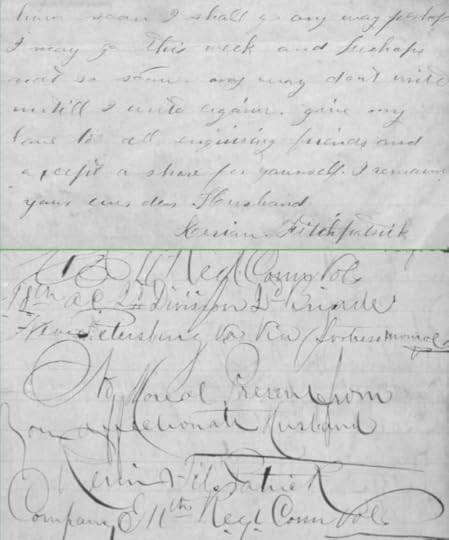 how soon I shall go any way perhap
I may go this week and perhaps
not so soon. any way don't write
untill I write again. give my
love to all enquiring friends and
a share for yourself. I remain
yours ever dear Husband
Fitchpatrick
11 Regt Conn Vol.
18th a C 2d Division 2d Brigade
Petersburg Va Via Fortress Monroe
Present from
your affectionate Husband
Fitzpatrick
Company E 11th Regt Conn Vol.